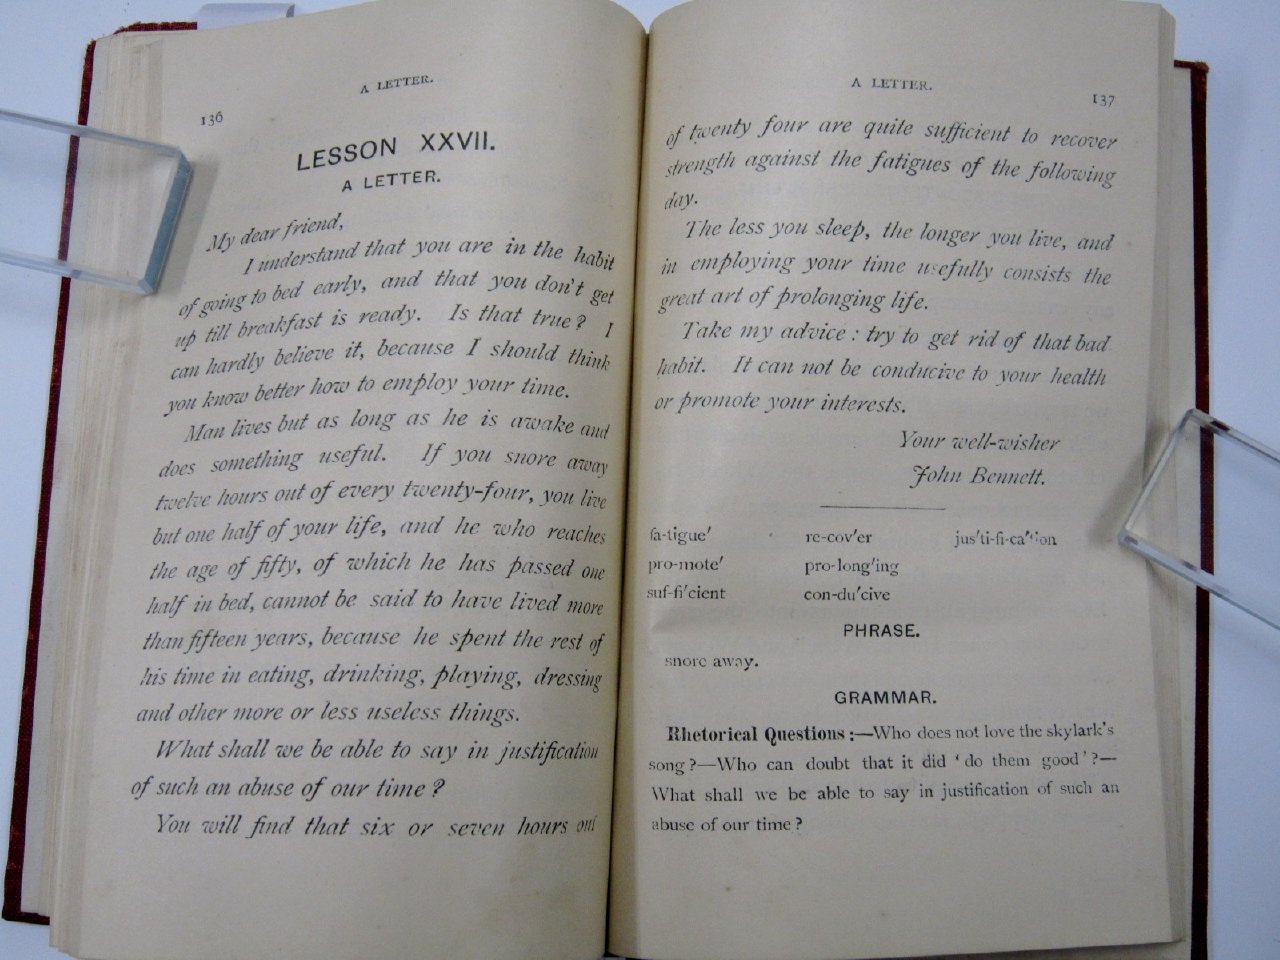 A LETTER.
136
LESSON XXVII.
A LETTER.
My dear friend,
I understand that you are in the habit
of going to bed early, and that you don't get
up till breakfast is ready. Is that true? I
can hardly believe it, because I should think
you know better how to employ your time.
Man lives but as long as he is awake and
does something useful. If you snore away
twelve hours out of every twenty-four, you live
but one half of your life, and he who reaches
the age of fifty, of which he has passed one
half in bed, cannot be said to have lived more
than fifteen years, because he spent the rest of
his time in eating, drinking, playing, dressing
and other more or less useless things.
What shall we be able to say in justification
of such an abuse of our time?
You will find that six or seven hours out
A LETTER.
137
of twenty four are quite sufficient to recover
strength against the fatigues of the following
day.
The less you sleep, the longer you live, and
in employing your time usefully consists the
great art of prolonging life.
Take my advice: try to get rid of that bad
habit. It can not be conducive to your health
or promote your interests.
Your well-wisher
John Bennett.
fa-tigue' re-cov'er jus'ti-fi-ca'tion
pro-mote' pro-long'ing
suf-fi'cient con-du'cive
PHRASE.
snore away.
GRAMMAR.
Rhetorical Questions:—Who does not love the skylark's
song?—Who can doubt that it did 'do them good'?—
What shall we be able to say in justification of such an
abuse of our time?